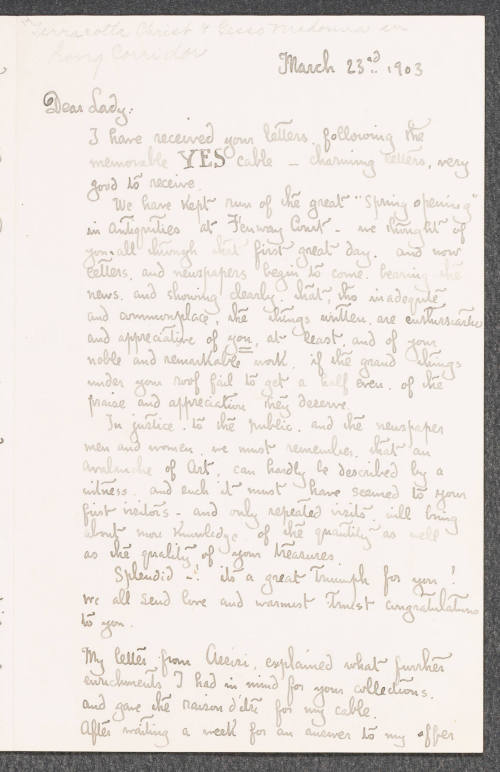 Terracotta Christ & Gesso Madonna in
Long Corridor
March 23rd. 1903
Dear Lady:
I have received your letters following the
memorable YES cable – charming letters, very
good to receive.
We have kept run of the great "Spring opening"
in antiquities at Fenway Court – we thought of
you all through that first great day. and now
letters. and newspapers begin to come. bearing the
news. and showing clearly. that, tho inadequate
and commonplace, the things written. are enthusiastic
and appreciative of you, at least. and of your
noble and remarkable work. if the grand things
under your roof fail to get a half even. of the
praise and appreciation they deserve.
In justice. to the public. and the newspaper
men and women. we must remember. that an
avalanche of Art. can hardly be described by a
witness. and such it must have seemed to your
first visitors – and only repeated visits will bring
about more knowledge of the quantity as well
as the quality of your treasures.
Splendid –! its a great Triumph for you!
We all send love and warmest Truest congratulations
to you.
My letter from Assisi. explained what further
enrichments I had in mind for your collections.
and gave the raison d'être for my cable.
After waiting a week for an answer to my offer